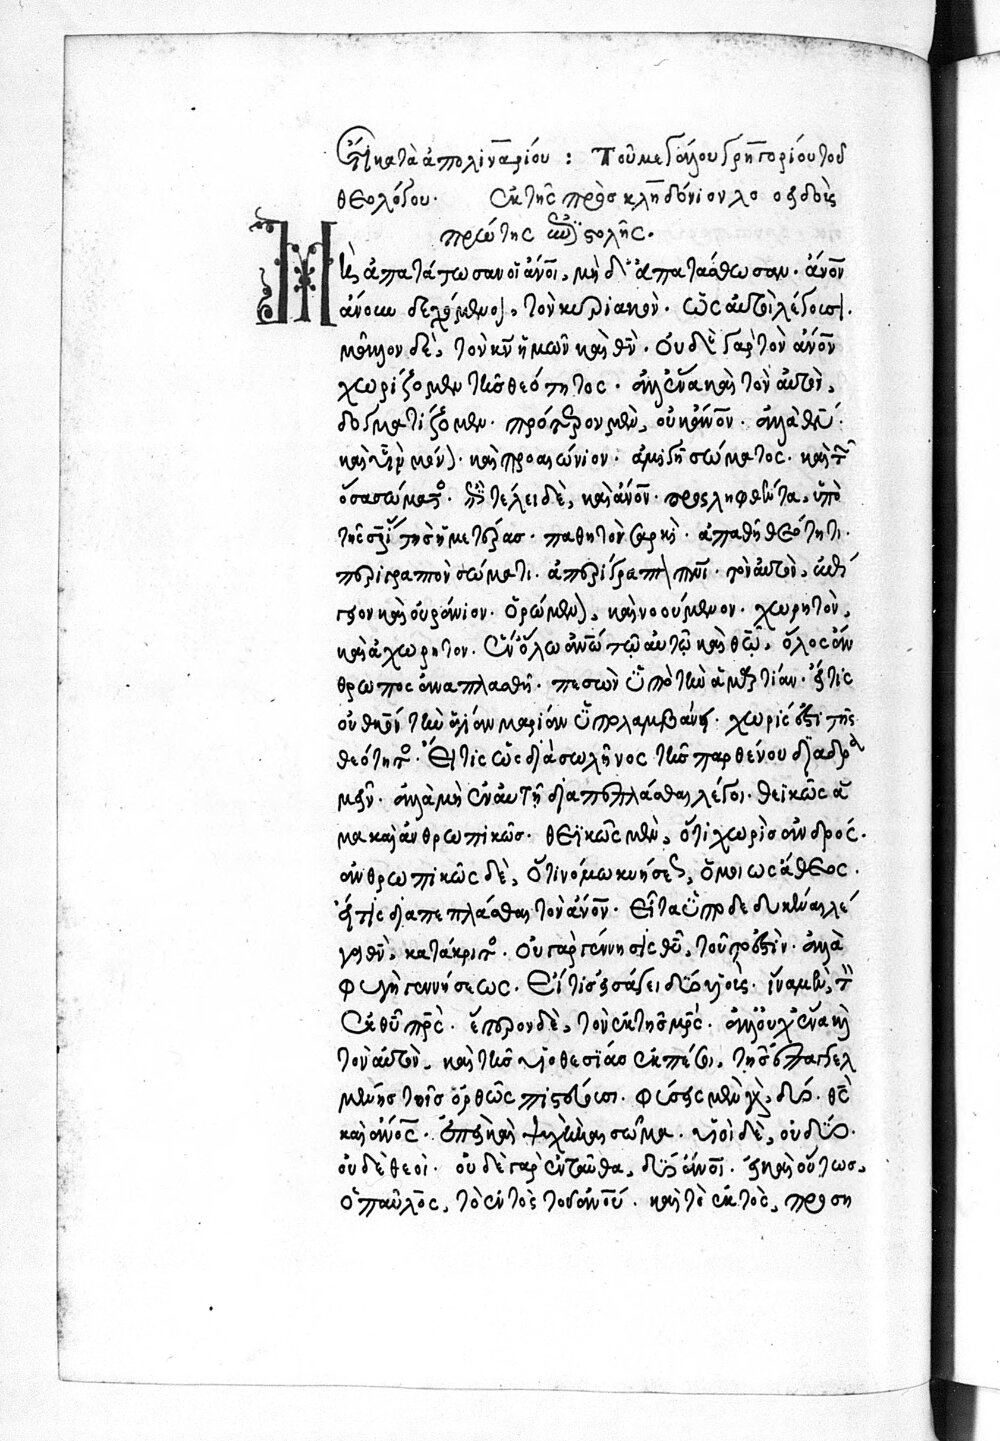 κατὰ ἀπολιναρίου : Τοῦ μεγάλου γρηγορίου τοῦ
θεολόγου. ἐκ τῆς πρὸς κληδόνιον
πρώτης ἐπιστολῆς.
Μὴ ἀπατάτωσαν οἱ ἄνοι, μὴ δὲ ἀπατάσθωσαν. ἄνον
ἄνουν δεχόμενοι, τὸν κυριακὸν. ὡς αὐτοὶ λέγουσι.
μᾶλλον δὲ, τὸν κν ἡμῶν καὶ θν. οὐδὲ γὰρ τὸν ἄνον
χωρίζομεν τῆς θεότητος. ἀλλ' ἕνα καὶ τὸν αὐτὸν,
δογματίζομεν. πρότερον μὲν, οὐκ ἄνον. ἀλλὰ θν
καὶ υν μόνον. καὶ προαιώνιον. ἀμιγῆ σώματος. καὶ τῶν
ὅσα σώματος. ἐπὶ τέλει δὲ, καὶ ἄνον. προσληφθέντα, ὑπὲρ
τῆς σρίας τῆς ἡμετέρας. παθητὸν σαρκὶ. ἀπαθῆ θεότητι.
περιγραπτὸν σώματι. ἀπερίγραπτον πνι. τὸν αὐτὸν, ἐπί
γειον καὶ οὐράνιον. ὁρώμενον, καὶ νοούμενον. χωρητὸν,
καὶ ἀχώρητον. ἵν' ὅλω ἀνω τῶ αὐτῶ καὶ θω, ὅλος ἄν
θρωπος ἀναπλασθῆ. πεσὼν ὑπὸ τὴν ἁμαρτίαν. εἴ τις
οὐ θκον τὴν ἁγίαν μαρίαν ὑπολαμβάνει. χωρίς ἐστι τῆς
θεότητος. Εἴ τις ὡς διὰ σωλῆνος τῆς παρθένου διαδρα
μεῖν. ἀλλὰ μὴ ἐν αὐτῆ διαπεπλάσθαι λέγοι. θεϊκῶς ἅ
μα καὶ ἀνθρωπικῶς. θεϊκῶς μὲν, ὅτι χωρὶς ἀνδρός.
ἀνθρωπικῶς δὲ, ὅτι νόμω κυήσεως, ὁμοίως ἄθεος.
εἴ τις διαπεπλάσθαι τὸν ἄνον. εἶτα ὑποδεδυκέναι λέ
γοι θν, κατάκριτος. οὐ γὰρ γέννησις θυ, τοῦτό ἐστιν. ἀλλὰ
φυγὴ γεννήσεως. Εἴ τις εἰσάγει δύο υἱοὺς. ἕνα μὲν, τὸν
ἐκ θυ πρς. ἕτερον δὲ, τὸν ἐκ τῆς μρς. ἀλλ' οὐχ' ἕνα καὶ
τὸν αὐτὸν, καὶ τῆς υἱοθεσίας ἐκπέσοι, τῆς ἐπαγγελ
μένης τοῖς ὀρθῶς πιστεύουσι. φύσεις μὲν γὰρ δύο. θς
καὶ ἄνος. ἐπεὶ καὶ ψυχὴ καὶ σῶμα. υἱοὶ δὲ, οὐ δύο.
οὐδὲ θεοὶ. οὐδὲ γὰρ ἐνταῦθα, δύο ἄνοι. εἰ καὶ οὕτως.
ὁ παῦλος, τὸ ἐντὸς τοῦ ἀνου. καὶ τὸ ἐκτὸς, προση